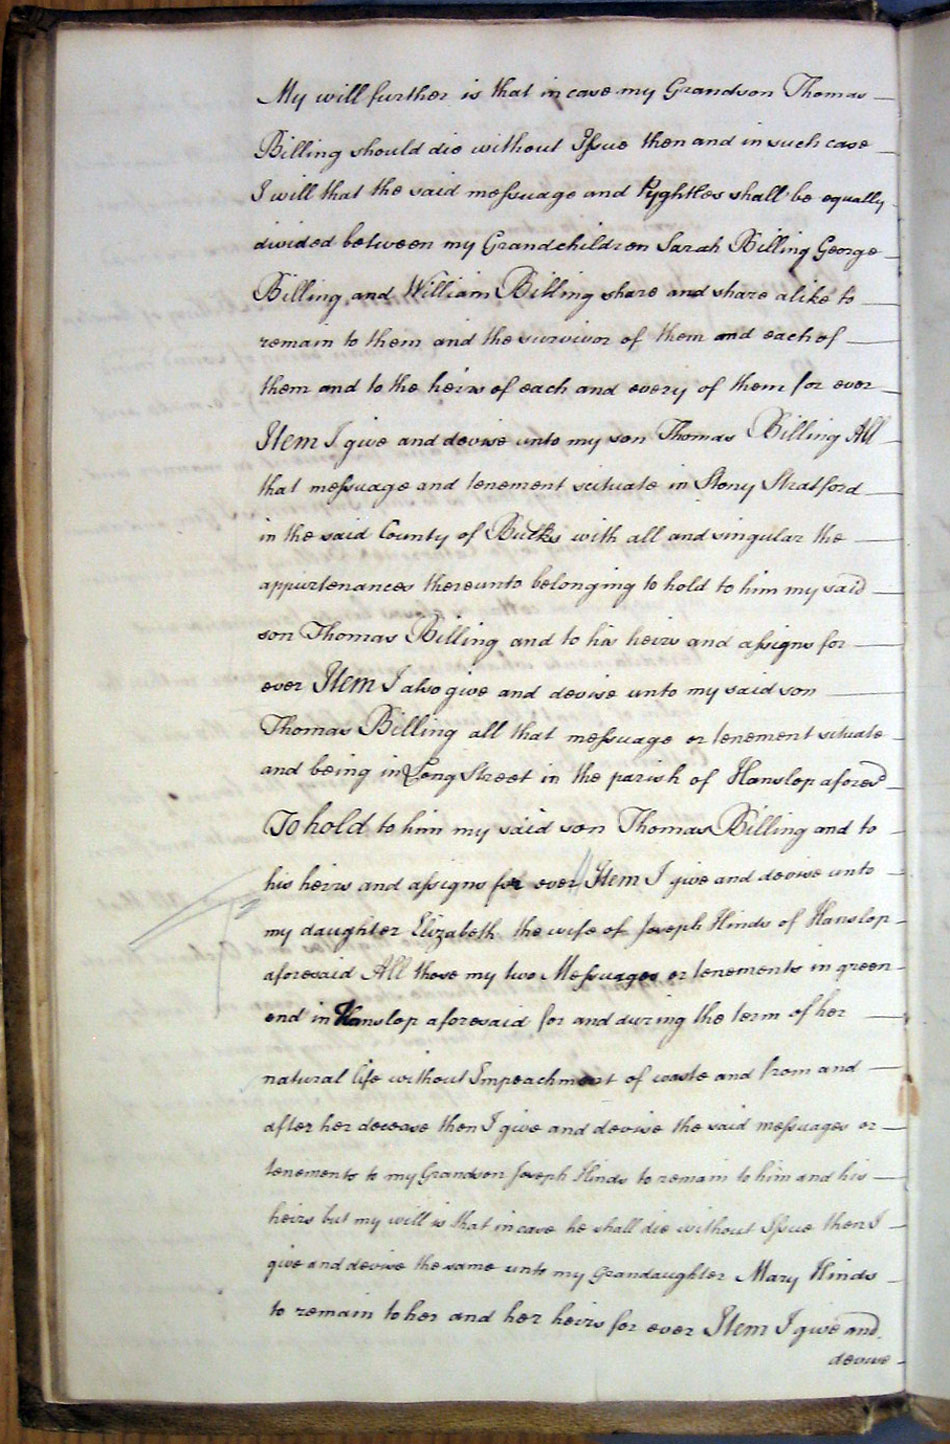 My will further is that in case my Grandson Thomas
Billing should die without Ifsue then and in such case
I will that the said mefsuage and Pyghtles shall be equally
divided between my Grandchildren Sarah Billing George
Billing and William Billing share and share alike to
remain to them and the survivor of them and each of
them and to the heirs of each and every of them for ever
Item I give and devise unto my son Thomas Billing All
that mefsuage and tenement scituate in Stony Stratford
in the said County of Bucks with all and singular the
appurtenances thereunto belonging to hold to him my said
son Thomas Billing and to his heirs and afsigns for
ever Item I also give and devise unto my said son
Thomas Billing all that mefsuage or tenement situate
and being in Long Street in the parish of Hanslop aforesd
To hold to him my said son Thomas Billing and to
his heirs and afsigns for ever // Item I give and devise unto
my daughter Elizabeth the wife of Joseph Hinds of Hanslop
aforesaid All those my two Mefsuages or tenements in green
end in Hanslop aforesaid for and during the term of her
natural life without Impeachment of waste and from and
after her decease then I give and devise the said mefsuages or
tenements to my Grandson Joseph Hinds to remain to him and his
heirs but my will is that in case he shall die without Ifsue then I
give and devise the same unto my Grandaughter Mary Hinds
to remain to her and her heirs for ever Item I give and
devise